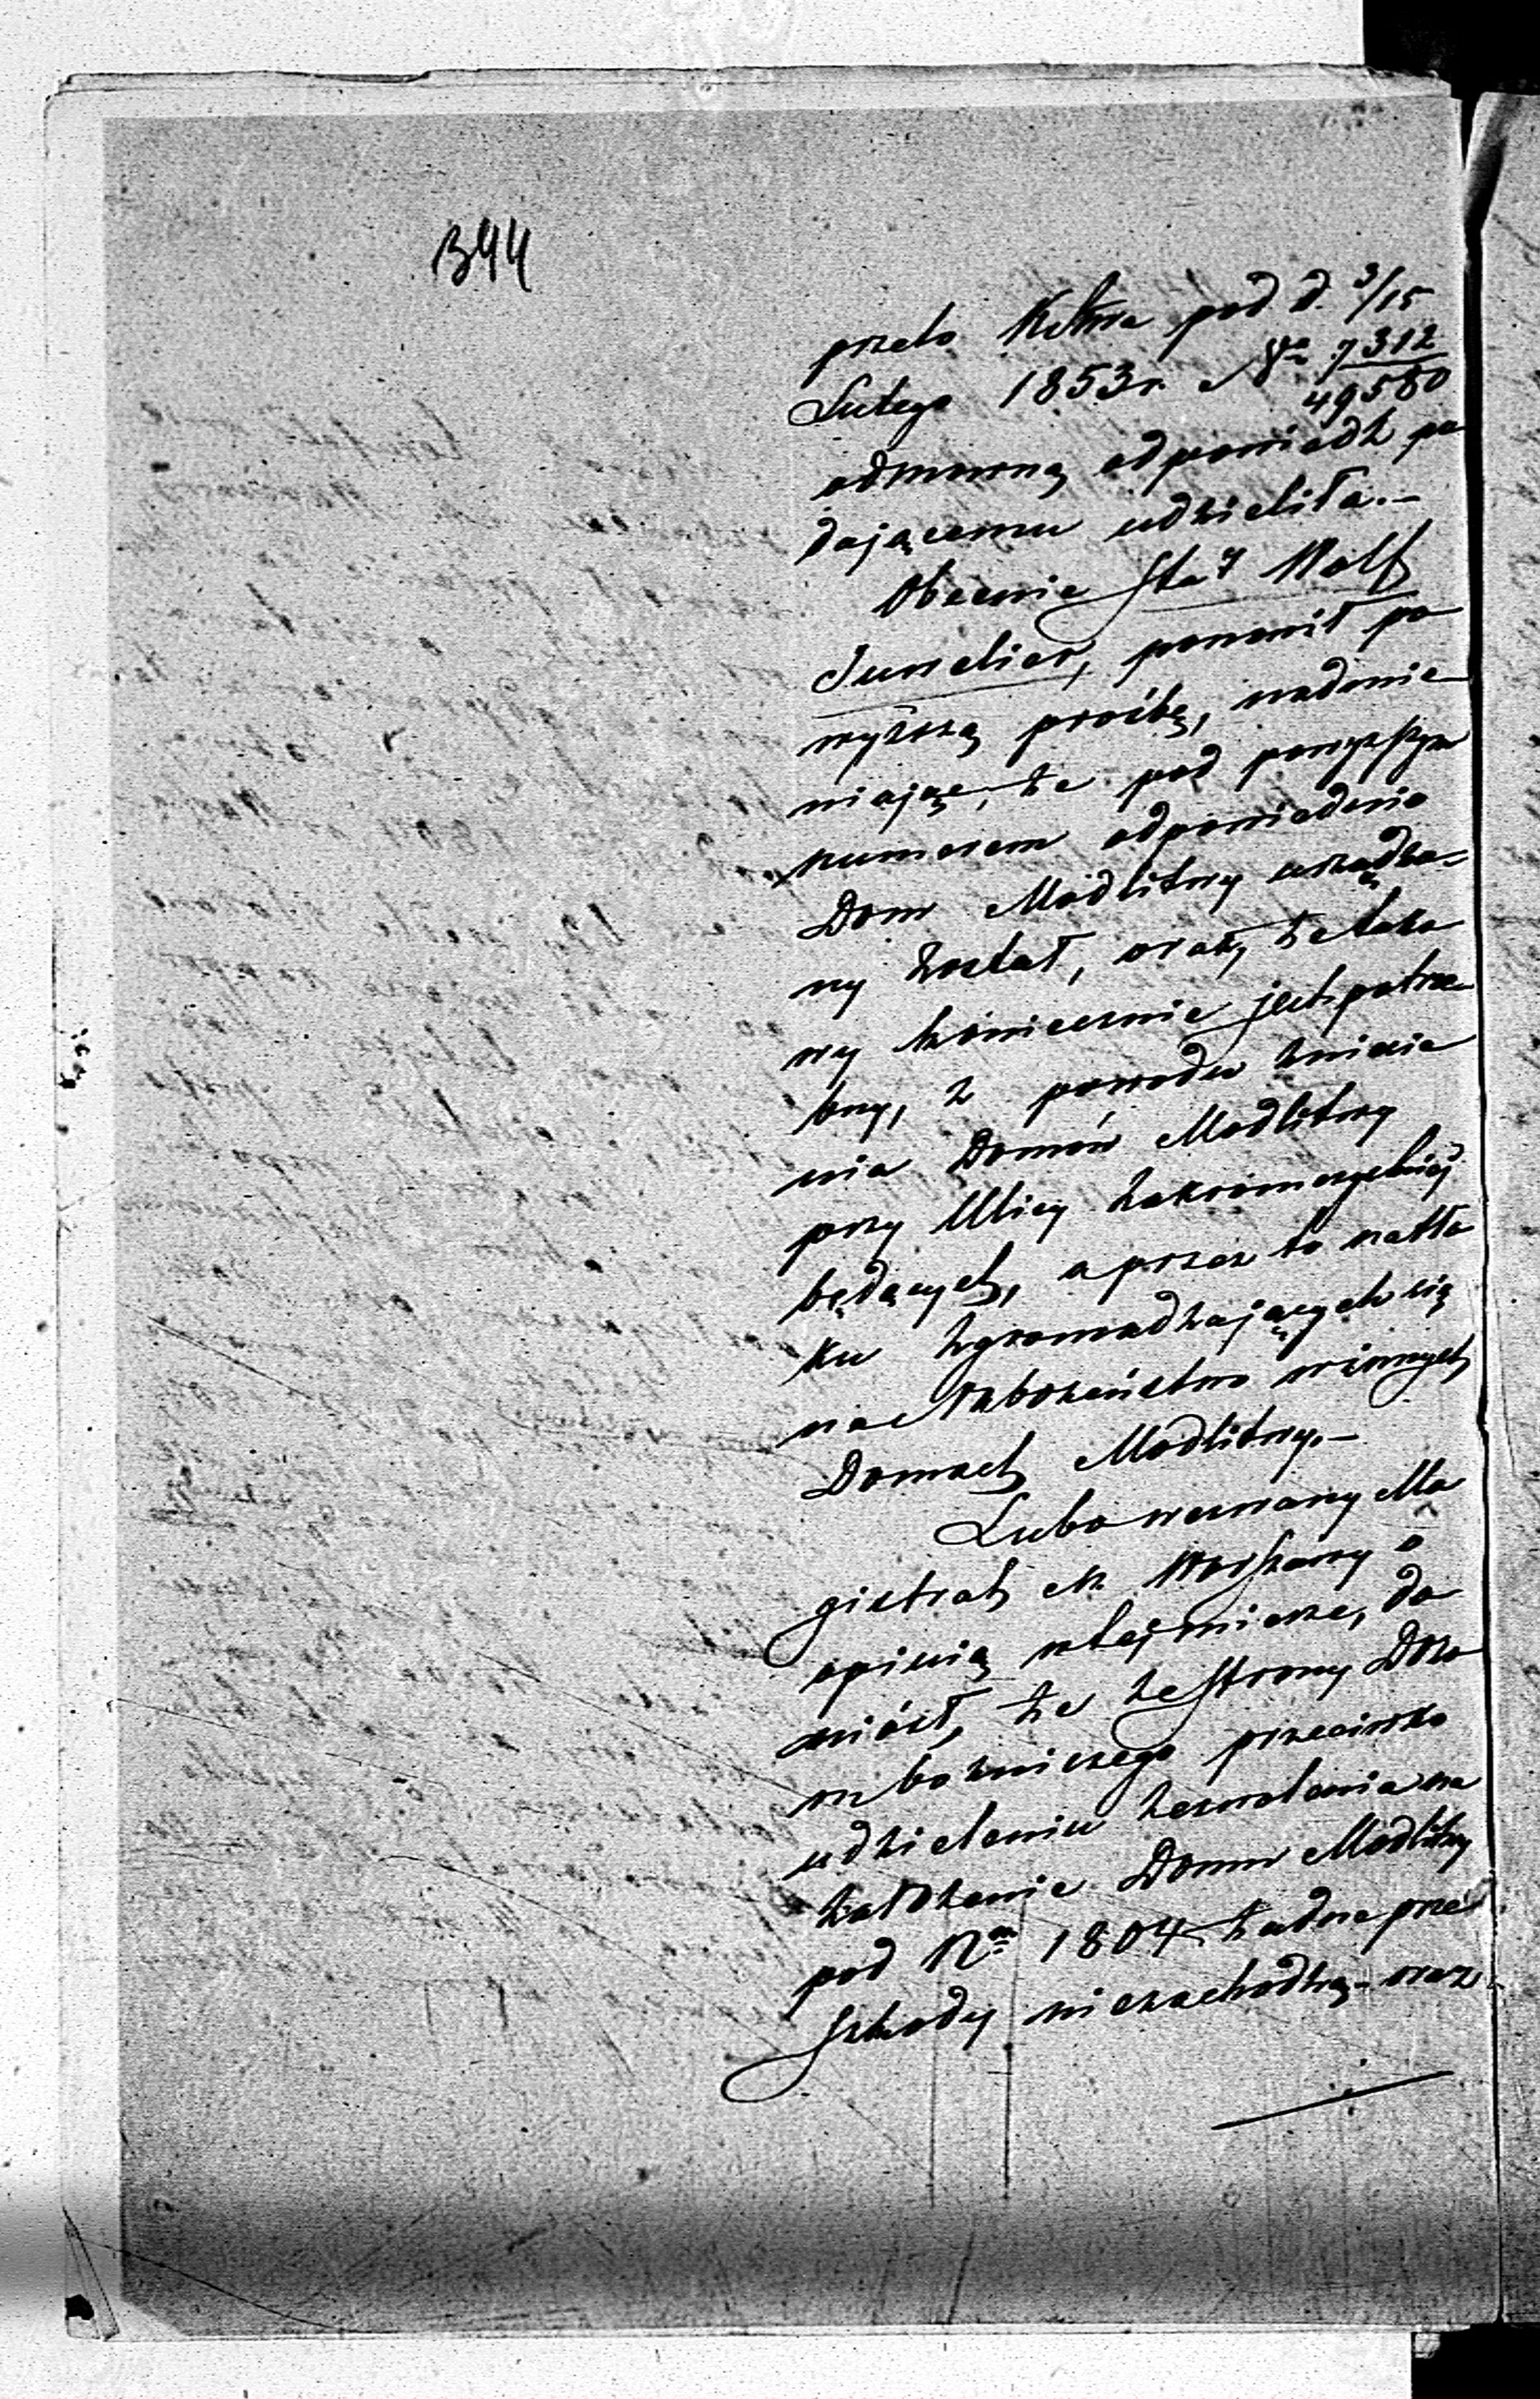 344
przeto Kom̃a pod d. 3/15
Lutego 1853 r. Nº 7312/49580
odmowną odpowiedź po
dającemu udzieliła.—
Obecnie Sta⁊ Wolf
Juwelier, ponowił po
wyższą prośbę, nadmie
niając, że pod powyższym
numerem odpowiednio
Dom Modlitwy urządzo-
ny został, oraz, że tako
wy koniecznie jest potrze
bny, z powodu zniesie
nia Domów Modlitwy
przy Ulicy Zakroczymskiéj
będących, a przez to natło
ku zgromadzających się
na Nabożeństwo w innych
Domach Modlitwy.—
Lubo wezwany Ma
gistrat M. Warszawy o
opinią w tej mierze, do
niósł, że ze strony Dozo
ru bożniczego przeciwko
udzieleniu zezwolenia na
założenie Domu Modlitwy
pod Nm 1804 żadne prze
szkody nie zachodzą — oraz